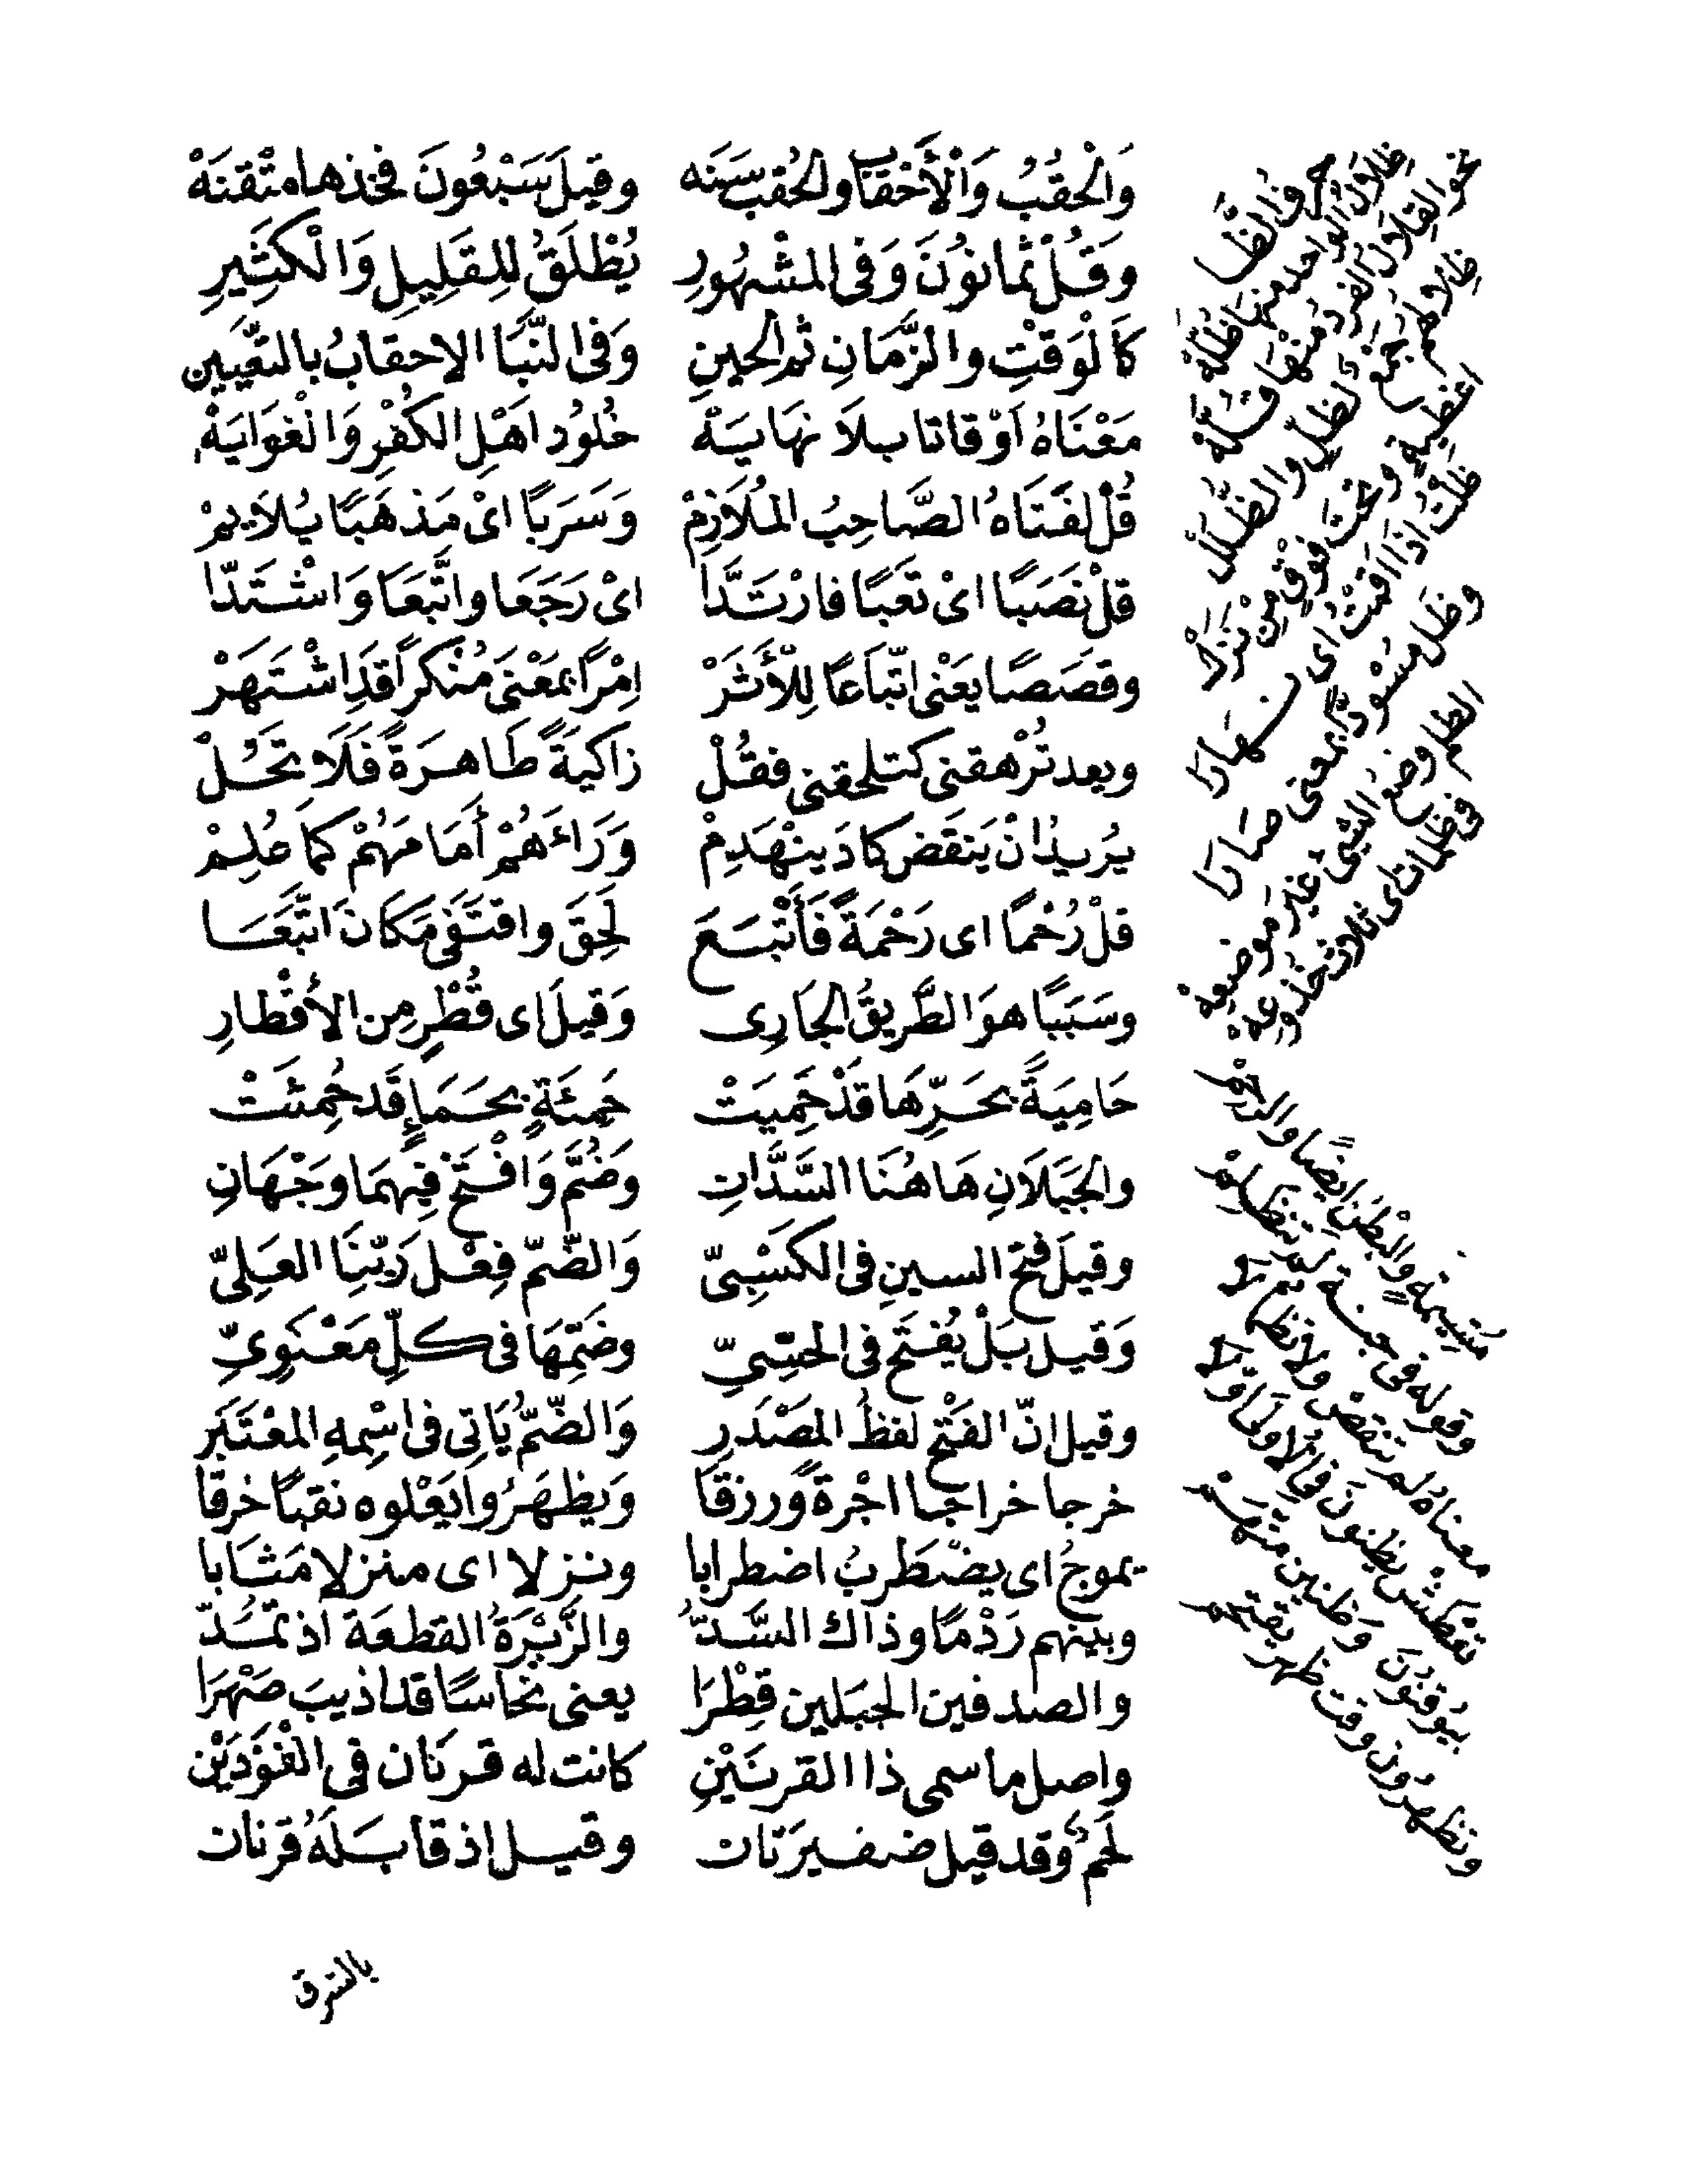 وَالْحُقُبُ وَالْأَحْقَابُ والحُقب سَنَه وقيلَ سَبْعُونَ فخذها متْقنَهْ
وَقُلْ ثمانونَ وَفى المشْهُورِ يُطْلَقُ لِلقَلِيلِ وَالْكَثِيرِ
كَالْوَقْتِ والزَّمَانِ ثم الحينِ وَفى النَّبَا الاحقابُ بالتَّعْيِينِ
مَعْنَاهُ اَوْقاتا بلاَ نهَايَةْ خُلُودُ اهْلِ الكُفْرِ وَالْغَوَايَةْ
قُلْ لفَتَاهُ الصَّاحِبُ المُلَازِمْ وَسَرَبًا اىْ مَذهَبًا يُلَايِمْ
قلْ نَصَبًا اىْ تَعَبًا فارْتَدَّا اىْ رَجَعَا واتَّبَعَا وَاشْتَدّا
وقصَصًا يَعْنى اتّبَاعًا لِلْأَثَرْ اِمْرًا بمَعْنىَ مُنْكرًا قدِ اشْتَهَرْ
وبعد تُرْهقنى كتلحقنى فقُلْ زاكيَةً طَاهرَةً فَلَا تحُلْ
يُريدُ انْ يَنقَض كادَ ينْهَدِمْ وَرَاءَهُمْ أَمَامَهُمْ كمَا عُلِمْ
قلْ رُحْمًا اى رَحْمَةً فَأَتْبَعَ لَحِقَ واقتَفَى مَكَانَ اتَّبَعَا
وسَبَبًا هوَ الطَّريقُ الجَارِى وَقيلَ اى قُطْرٍ مِن الأقْطارِ
حَامِيَةً بحَرِّهَا قدْ حَمِيَتْ حَمِئَةٍ بحَمَإٍ قَد حُمِئَتْ
والجَبَلَانِ هَاهُنَا السَّدَّانِ وضُمَّ وَافْتَحْ فِيهمَا وَجْهَانِ
وقيلَ فتح السينِ فى الكَسْبِىّ وَالضَّمّ فِعْل رَبّنَا العَلِىّ
وَقيل بَلْ يُفتَح فى الحسِّىِّ وضَمِّهَا فى كلّ مَعْنوِىِّ
وقيل انّ الفَتْح لفظُ المَصْدَرِ وَالضّمُّ يَاتِى فى اسْمِهِ المعْتَبَرِ
خرجا خراجا اجْرةً ورزقًا وَيَظهَرُوا يَعْلوه نقبًا خرقًا
يموجُ اى يضْطَربُ اضطرابا ونزلا اى منزلا مَثَابا
وبينهم رَدْمًا وذاك السَّدُّ والزُّبْرَةُ القطعَة اذ تمُدّ
والصدفين الجبَلين قِطْرَا يعنى نحُاسًا قد اذيبَ صَهْرَا
واصل ما سمى ذا القرنَيْنِ كانت له قرنَان فى الفَوْدَيْن
لَحمٌ وقد قيل ضفيرَتان وقيل اذ قابَلَهُ قرنان
حرف الظا
ظلال الواحد منها ظُلّهْ
نحو القِلَال الفرد منها قُلّهْ
ظلالهم جمع لظلّ والظُّلَل
اغطية وتحْتَ فوْقٍ مِن
ظلْتَ اذا اقمْتَ اى نهارا
وظلّ مُسْودًّا بمعنى صَارا
الظلم وضع الشئ غير موضعِهْ
فى ظلمات اى ثلاث
مَشِيمَةٍ والبَطْن ايضًا والرحِمْ
وقوله فى جنة لم تظلمْ
معناهُ لم تنقصْ
تعطش يظنون
يُوقنُونَ وَظنين متهمْ
وتظهرُون وقت ظهر
بالشرق